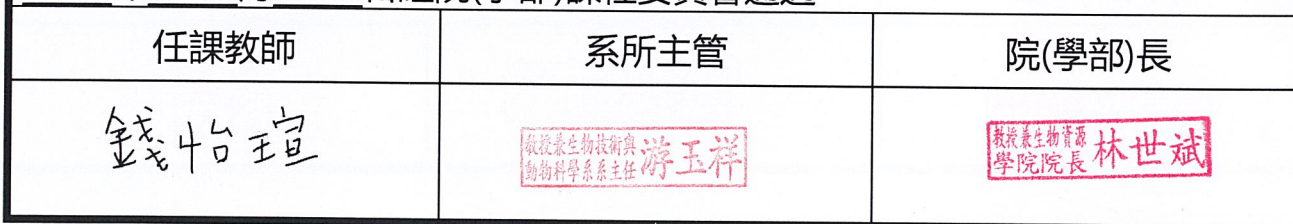 日經院(學部)課程委員會通過
任課教師
系所主管
院(學部)長
錢怡瑄
教授兼生物技術與
動物科學系系主任 游玉祥
教授兼生物資源
學院院長 林世斌